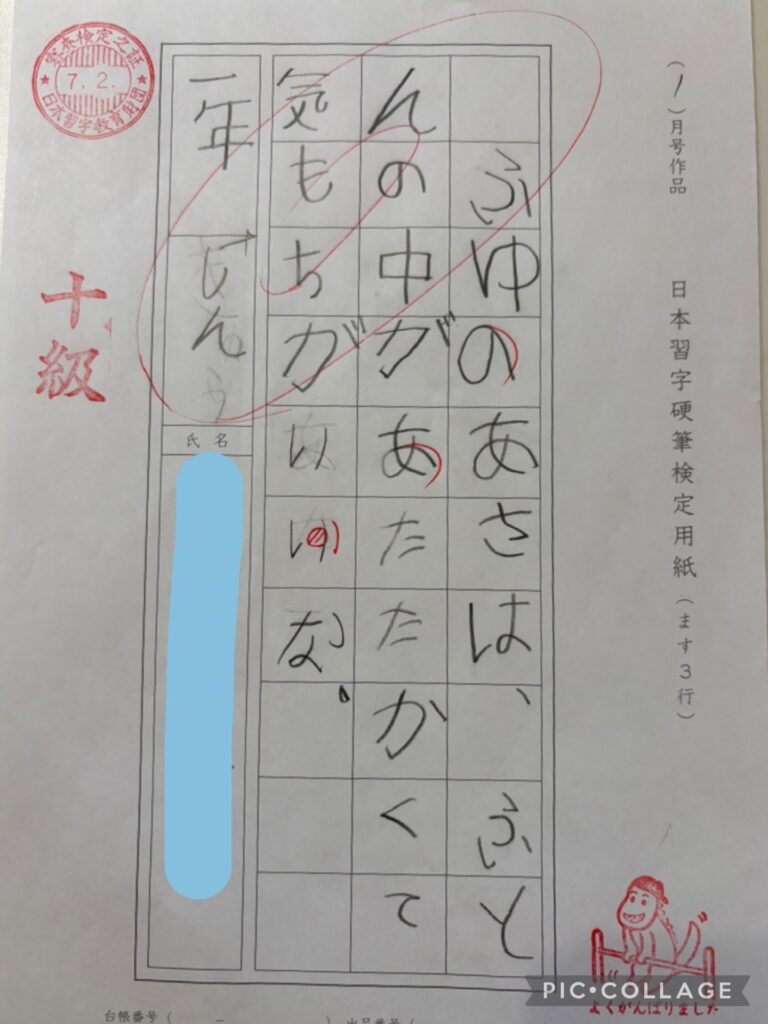 (1)月号作品　日本習字硬筆検定用紙(ます3行)
ふゆのあさは、ふと
んの中があたたかくて
気もちがいいな。
一年
氏名
審査検定之証
7.2.
日本習字教育財団
十級
よくがんばりました
台帳番号(
出品番号(
PIC•COLLAGE